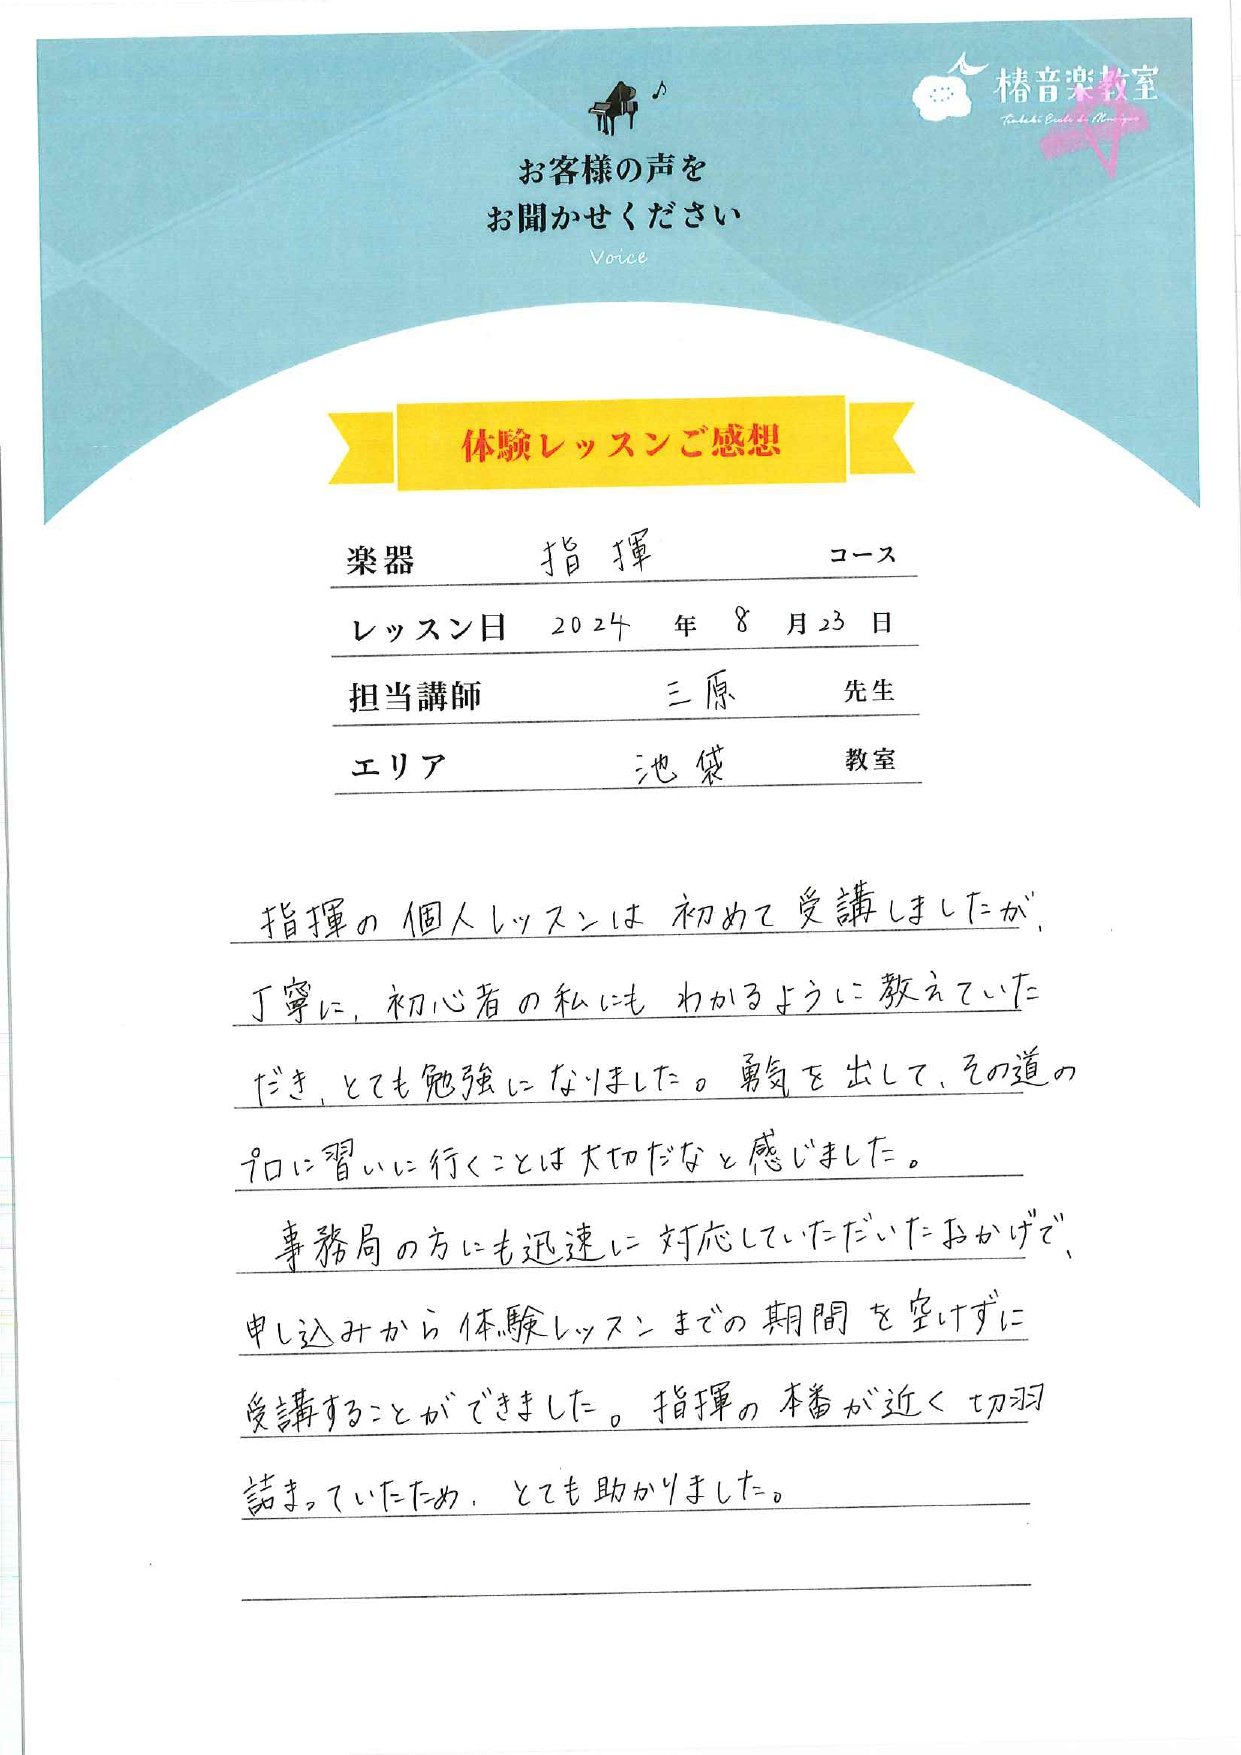 椿音楽教室
Tsubaki Ecole de Musique
お客様の声を
お聞かせください
Voice
体験レッスンご感想
楽器 指揮 コース
レッスン日 2024 年 8 月 23 日
担当講師 三原 先生
エリア 池袋 教室
指揮の個人レッスンは初めて受講しましたが、
丁寧に、初心者の私にもわかるように教えていた
だき、とても勉強になりました。勇気を出して、その道の
プロに習いに行くことは大切だなと感じました。
事務局の方にも迅速に対応していただいたおかげで、
申し込みから体験レッスンまでの期間を空けずに
受講することができました。指揮の本番が近く切羽
詰まっていたため、とても助かりました。